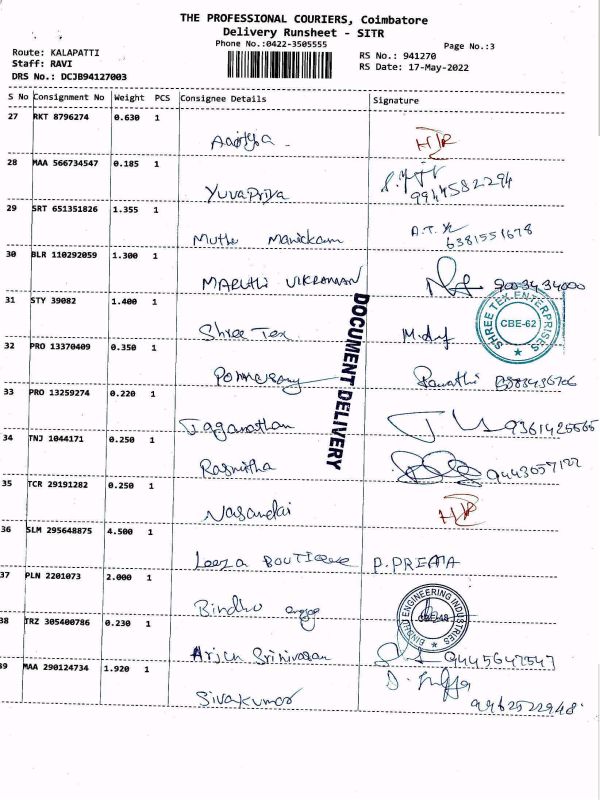 THE PROFESSIONAL COURIERS, Coimbatore
Delivery Runsheet - SITR
Phone No.:0422-3505555
Page No.:3
Route: KALAPATTI
RS No.: 941270
Staff: RAVI
RS Date: 17-May-2022
DRS No.: DCJB94127003
S No Consignment No Weight PCS Consignee Details Signature
27 RKT 8796274 0.630 1
28 MAA 566734547 0.185 1
Yuvapriya 9944582294
29 SRT 651351826 1.355 1
Muthu Manickam 6381551678
30 BLR 110292059 1.300 1
MARUTHI VIKRAMAN
31 STY 39082 1.400 1
Shree Tex
SHREE TEX ENTERPRISES
CBE-62
DOCUMENT DELIVERY
32 PRO 13370409 0.350 1
33 PRO 13259274 0.220 1
Jagganathan
34 TNJ 1044171 0.250 1
Rasmitha 9443057122
35 TCR 29191282 0.250 1
36 SLM 295648875 4.500 1
Leeza BOUTIQUE P.PREMA
37 PLN 2201073 2.000 1
Bindhu
BINDHU ENGINEERING INDUSTRIES
CBE-48
38 TRZ 305400786 0.230 1
Arjun Srinivasan 9445647547
39 MAA 290124734 1.920 1
Sivakumar 9962522948